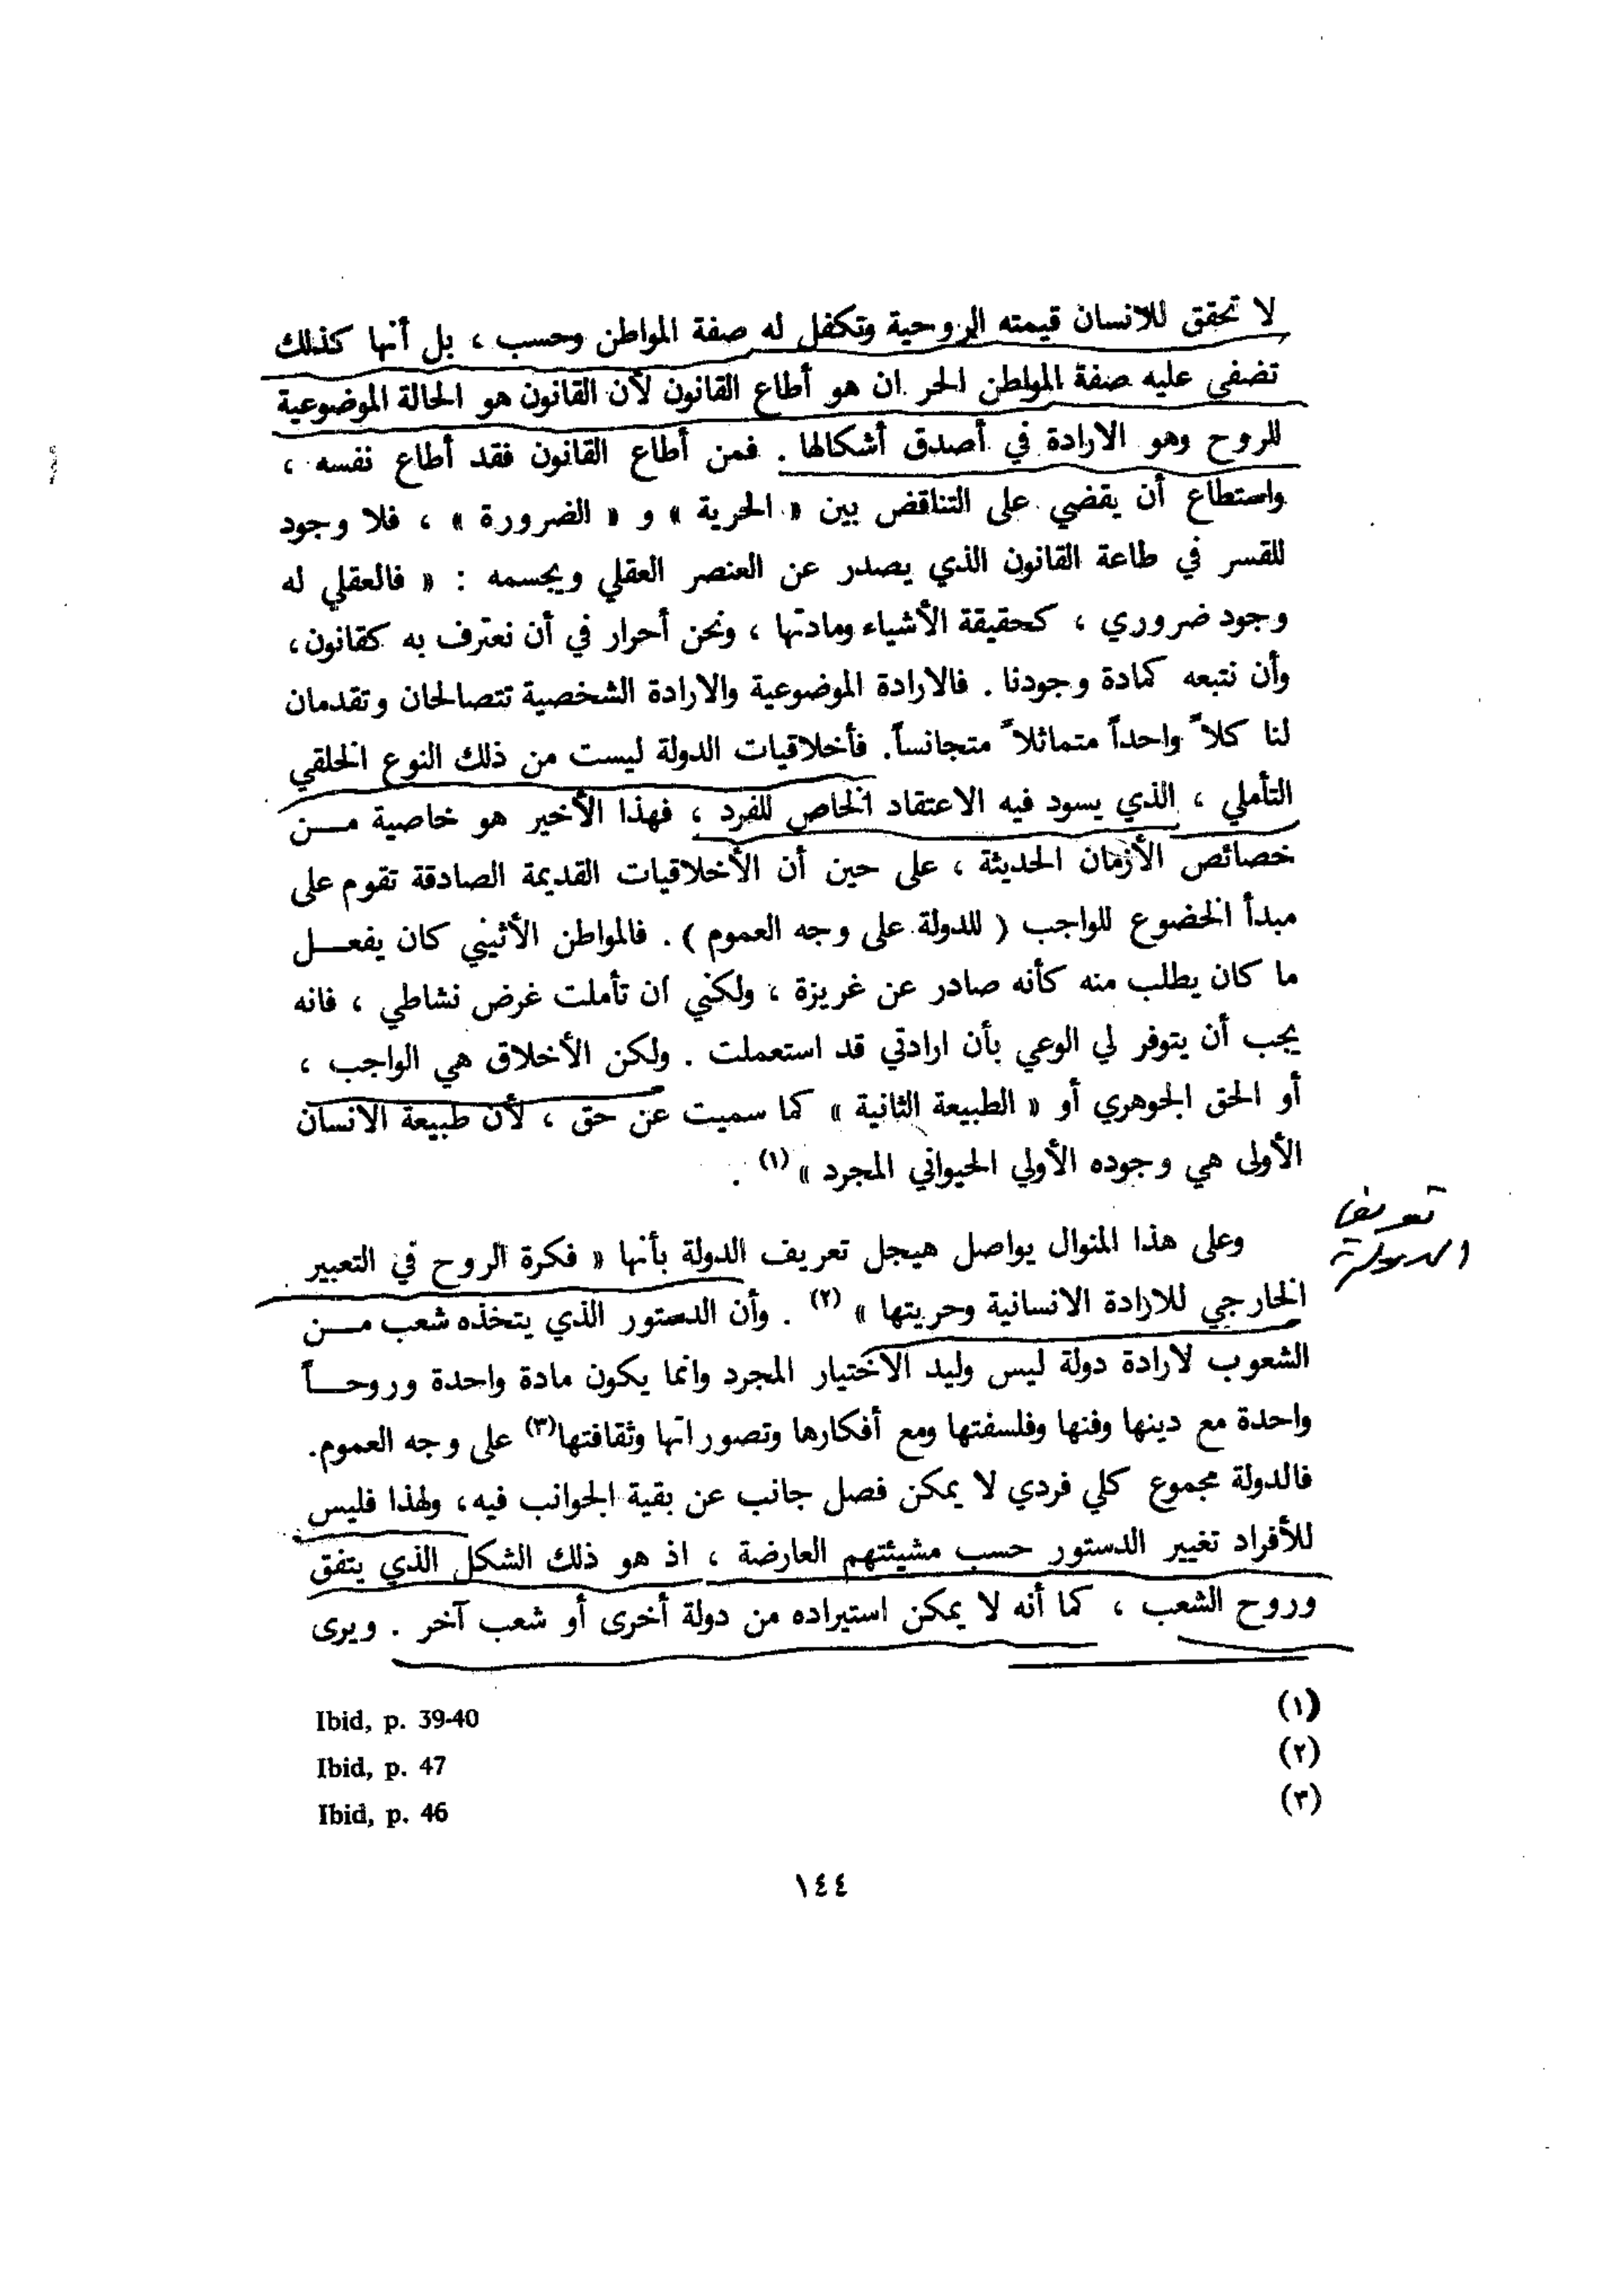 لا تحقق للانسان قيمته الروحية وتكفل له صفة المواطن وحسب ، بل أنها كذلك
تضفي عليه صفة المواطن الحر ان هو أطاع القانون لأن القانون هو الحالة الموضوعية
للروح وهو الارادة في أصدق أشكالها . فمن أطاع القانون فقد أطاع نفسه ،
واستطاع أن يقضي على التناقض بين « الحرية » و « الضرورة » ، فلا وجود
للقسر في طاعة القانون الذي يصدر عن العنصر العقلي ويجسمه : « فالعقلي له
وجود ضروري ، كحقيقة الأشياء ومادتها ، ونحن أحرار في أن نعترف به كقانون،
وأن نتبعه كمادة وجودنا . فالارادة الموضوعية والارادة الشخصية تتصالحان وتقدمان
لنا كلاً واحداً متماثلاً متجانساً. فأخلاقيات الدولة ليست من ذلك النوع الخلقي
التأملي ، الذي يسود فيه الاعتقاد الخاص للفرد ، فهذا الأخير هو خاصية مـــن
خصائص الأزمان الحديثة ، على حين أن الأخلاقيات القديمة الصادقة تقوم على
مبدأ الخضوع للواجب ( للدولة على وجه العموم ) . فالمواطن الأثيني كان يفعـــل
ما كان يطلب منه كأنه صادر عن غريزة ، ولكني ان تأملت غرض نشاطي ، فانه
يجب أن يتوفر لي الوعي بأن ارادتي قد استعملت . ولكن الأخلاق هي الواجب ،
أو الحق الجوهري أو « الطبيعة الثانية » كما سميت عن حق ، لأن طبيعة الانسان
الأولى هي وجوده الأولي الحيواني المجرد » (١) .
تعريف
الدولة
وعلى هذا المنوال يواصل هيجل تعريف الدولة بأنها « فكرة الروح في التعبير
الخارجي للارادة الانسانية وحريتها » (٢) . وأن الدستور الذي يتخذه شعب مـــن
الشعوب لارادة دولة ليس وليد الاختيار المجرد وانما يكون مادة واحدة وروحـــاً
واحدة مع دينها وفنها وفلسفتها ومع أفكارها وتصوراتها وثقافتها(٣) على وجه العموم.
فالدولة مجموع كلي فردي لا يمكن فصل جانب عن بقية الجوانب فيه، ولهذا فليس
للأفراد تغيير الدستور حسب مشيئتهم العارضة ، اذ هو ذلك الشكل الذي يتفق
وروح الشعب ، كما أنه لا يمكن استيراده من دولة أخرى أو شعب آخر . ويرى
(١) Ibid, p. 39-40
(٢) Ibid, p. 47
(٣) Ibid, p. 46
١٤٤